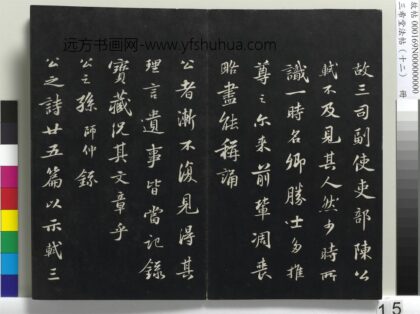 故三司副使吏部陳公
軾不及見其人然少時所
識一時名卿勝士多推
尊之尔來前輩凋喪
略盡能稱誦
公者漸不復見得其
理言遺事皆當記錄
寶藏況其文章乎
公之孫師仲錄
公之詩廿五篇以示軾三
远方书画网-www.yfshuhua.com
故帖 000169N000000000
三希堂法帖（十二） 冊
15